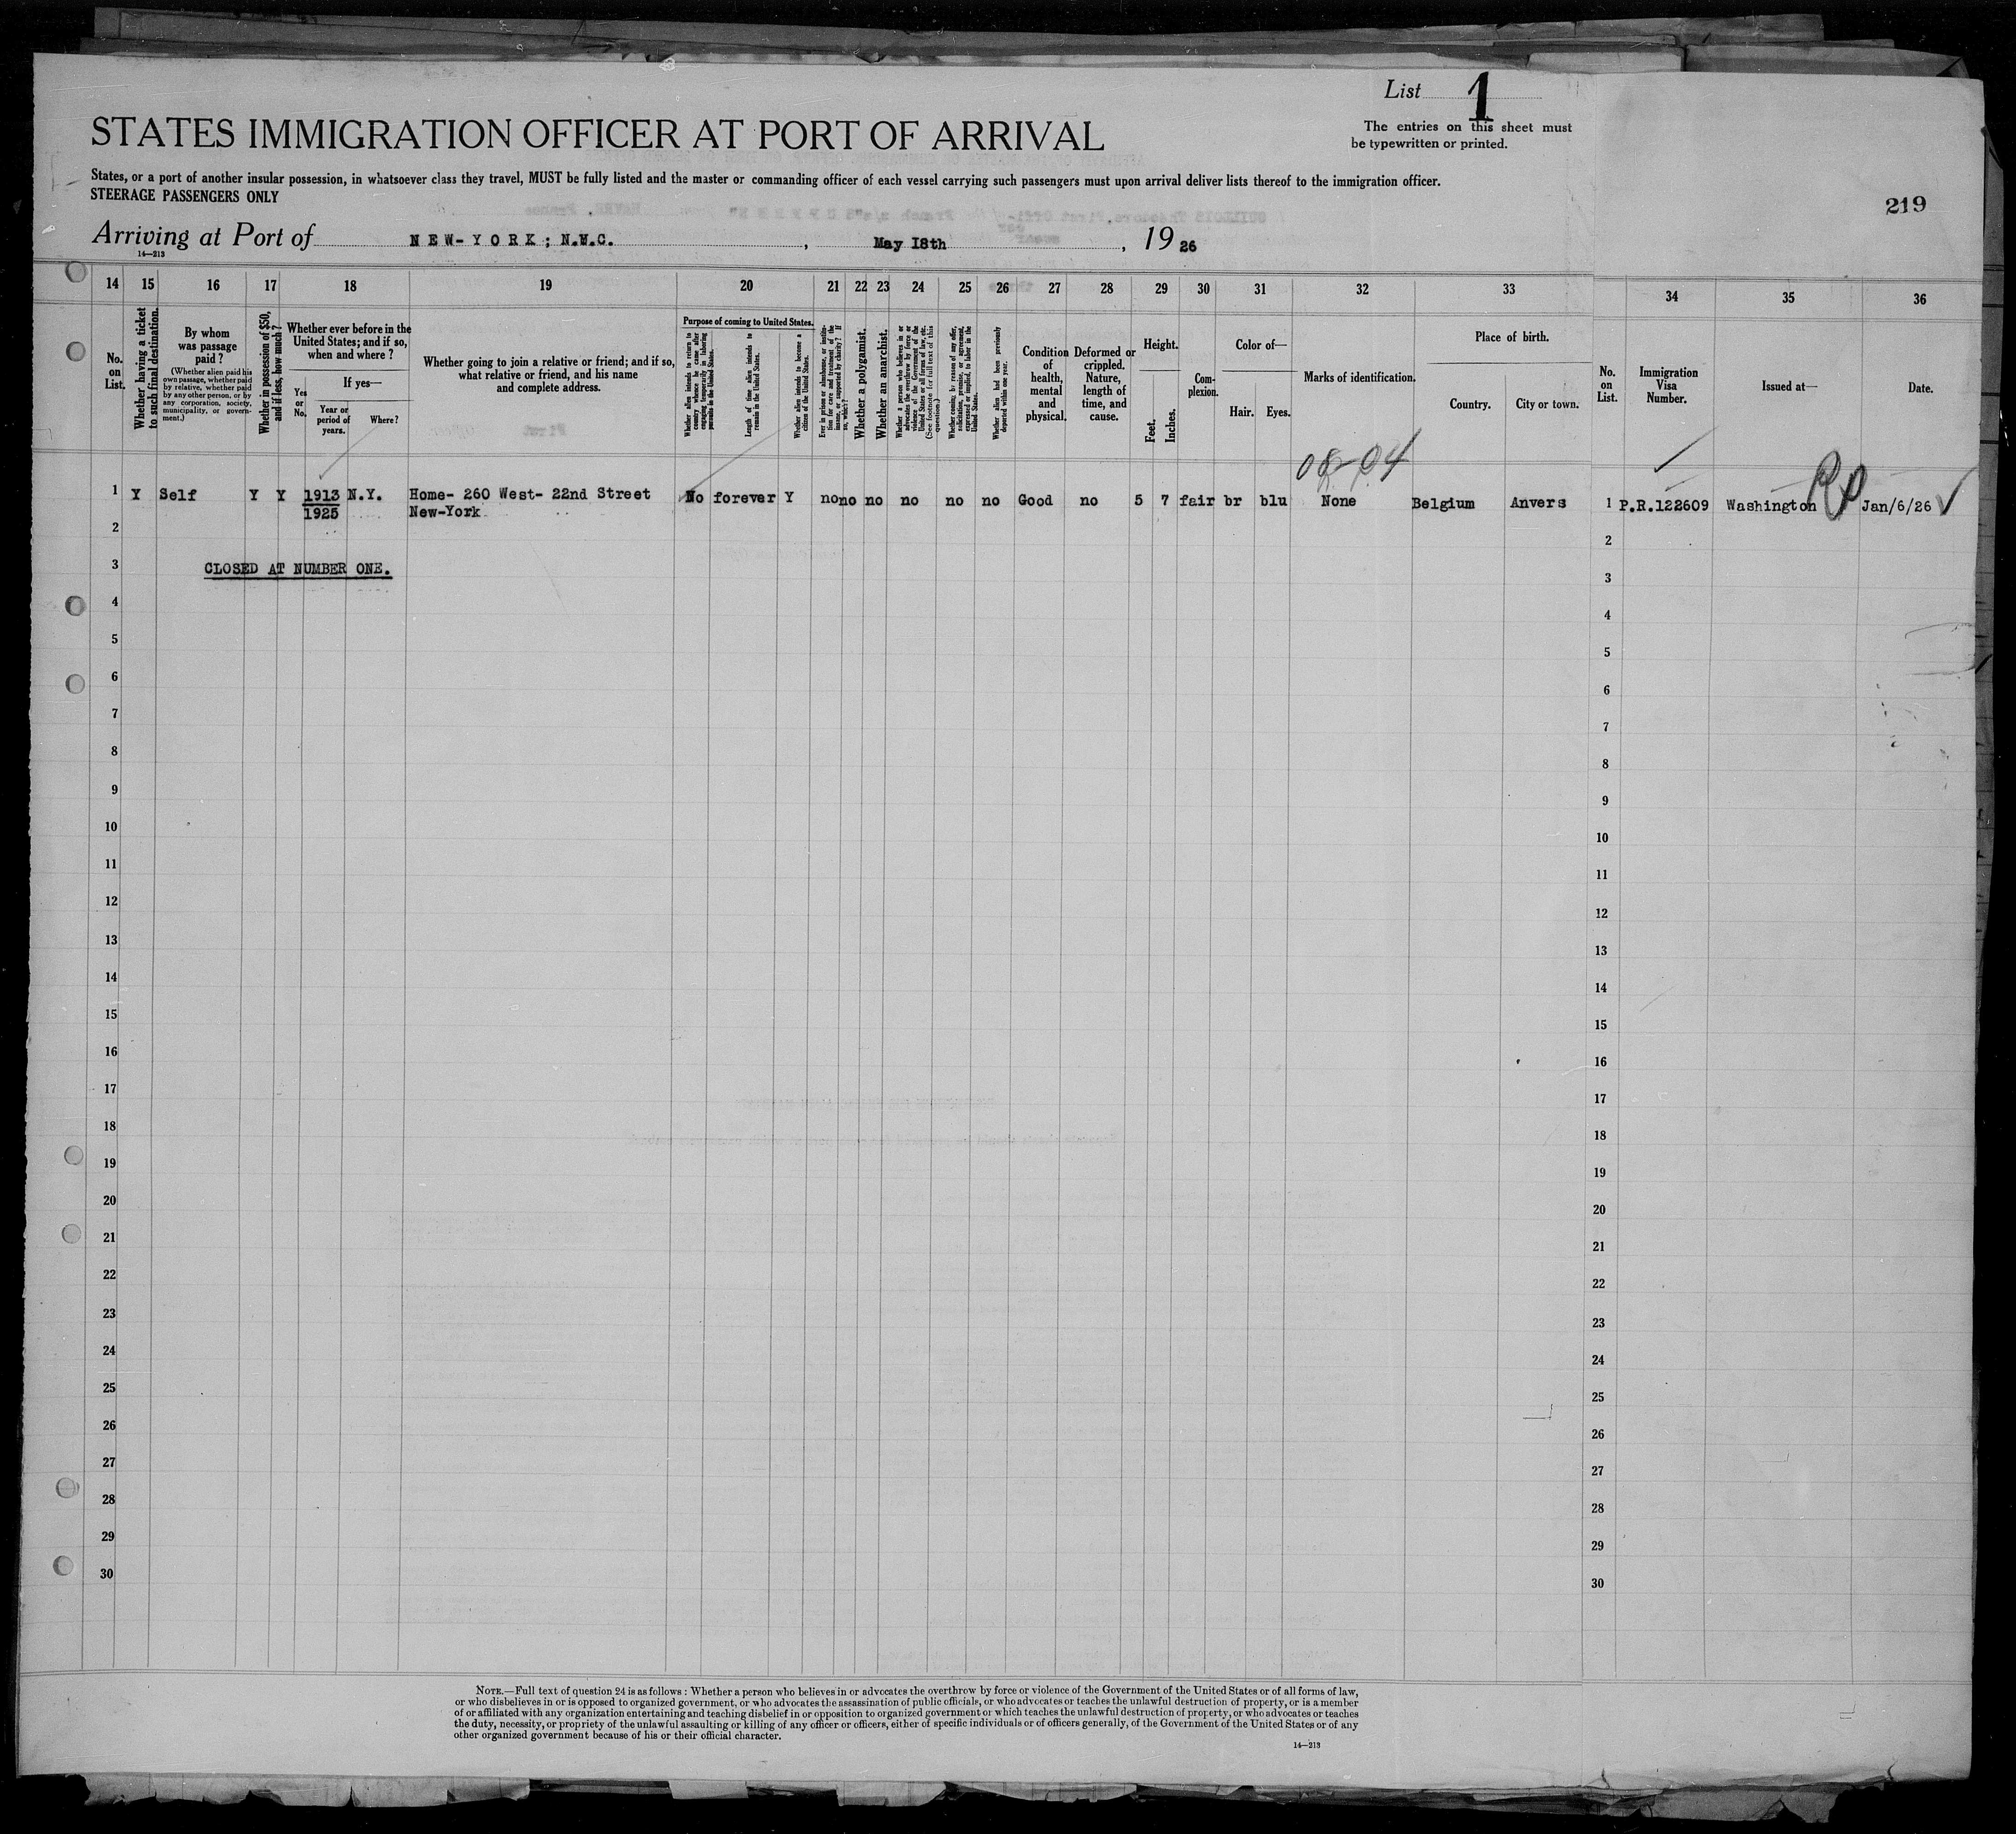 List 1
The entries on this sheet must
be typewritten or printed.
STATES IMMIGRATION OFFICER AT PORT OF ARRIVAL
States, or a port of another insular possession, in whatsoever class they travel, MUST be fully listed and the master or commanding officer of each vessel carrying such passengers must upon arrival deliver lists thereof to the immigration officer.
STEERAGE PASSENGERS ONLY
219
Arriving at Port of NEW-YORK; N.W.C. , May I8th , 19 26
14—213
14 15 16 17 18 19 20 21 22 23 24 25 26 27 28 29 30 31 32 33 34 35 36
No. on List.
Whether having a ticket to such final destination.
By whom was passage paid?
(Whether alien paid his own passage, whether paid by relative, whether paid by any other person, or by any corporation, society, municipality, or government.)
Whether in possession of $50, and if less, how much?
Whether ever before in the United States; and if so, when and where?
Yes or No.
If yes—
Year or period of years.
Where?
Whether going to join a relative or friend; and if so, what relative or friend, and his name and complete address.
Purpose of coming to United States.
Whether alien intends to return to country whence he came after engaging temporarily in laboring pursuits in the United States.
Length of time alien intends to remain in the United States.
Whether alien intends to become a citizen of the United States.
Ever in prison or almshouse, or institution for care and treatment of the insane, or supported by charity? If so, which?
Whether a polygamist.
Whether an anarchist.
Whether a person who believes in or advocates the overthrow by force or violence of the Government of the United States or all forms of law, etc. (See footnote for full text of this question.)
Whether coming by reason of any offer, solicitation, promise, or agreement, expressed or implied, to labor in the United States.
Whether alien had been previously deported within one year.
Condition of health, mental and physical.
Deformed or crippled. Nature, length of time, and cause.
Height.
Feet.
Inches.
Complexion.
Color of—
Hair.
Eyes.
Marks of identification.
Place of birth.
Country.
City or town.
No. on List.
Immigration Visa Number.
Issued at—
Date.
08-04
1 Y Self Y Y 1913 N.Y. Home- 260 West- 22nd Street No forever Y no no no no no no Good no 5 7 fair br blu None Belgium Anvers 1 P.R.122609 Washington Jan/6/26
1925 New-York
2 2
3 CLOSED AT NUMBER ONE. 3
4 4
5 5
6 6
7 7
8 8
9 9
10 10
11 11
12 12
13 13
14 14
15 15
16 16
17 17
18 18
19 19
20 20
21 21
22 22
23 23
24 24
25 25
26 26
27 27
28 28
29 29
30 30
NOTE.—Full text of question 24 is as follows: Whether a person who believes in or advocates the overthrow by force or violence of the Government of the United States or of all forms of law,
or who disbelieves in or is opposed to organized government, or who advocates the assassination of public officials, or who advocates or teaches the unlawful destruction of property, or is a member
of or affiliated with any organization entertaining and teaching disbelief in or opposition to organized government or which teaches the unlawful destruction of property, or who advocates or teaches
the duty, necessity, or propriety of the unlawful assaulting or killing of any officer or officers, either of specific individuals or of officers generally, of the Government of the United States or of any
other organized government because of his or their official character.
14—213